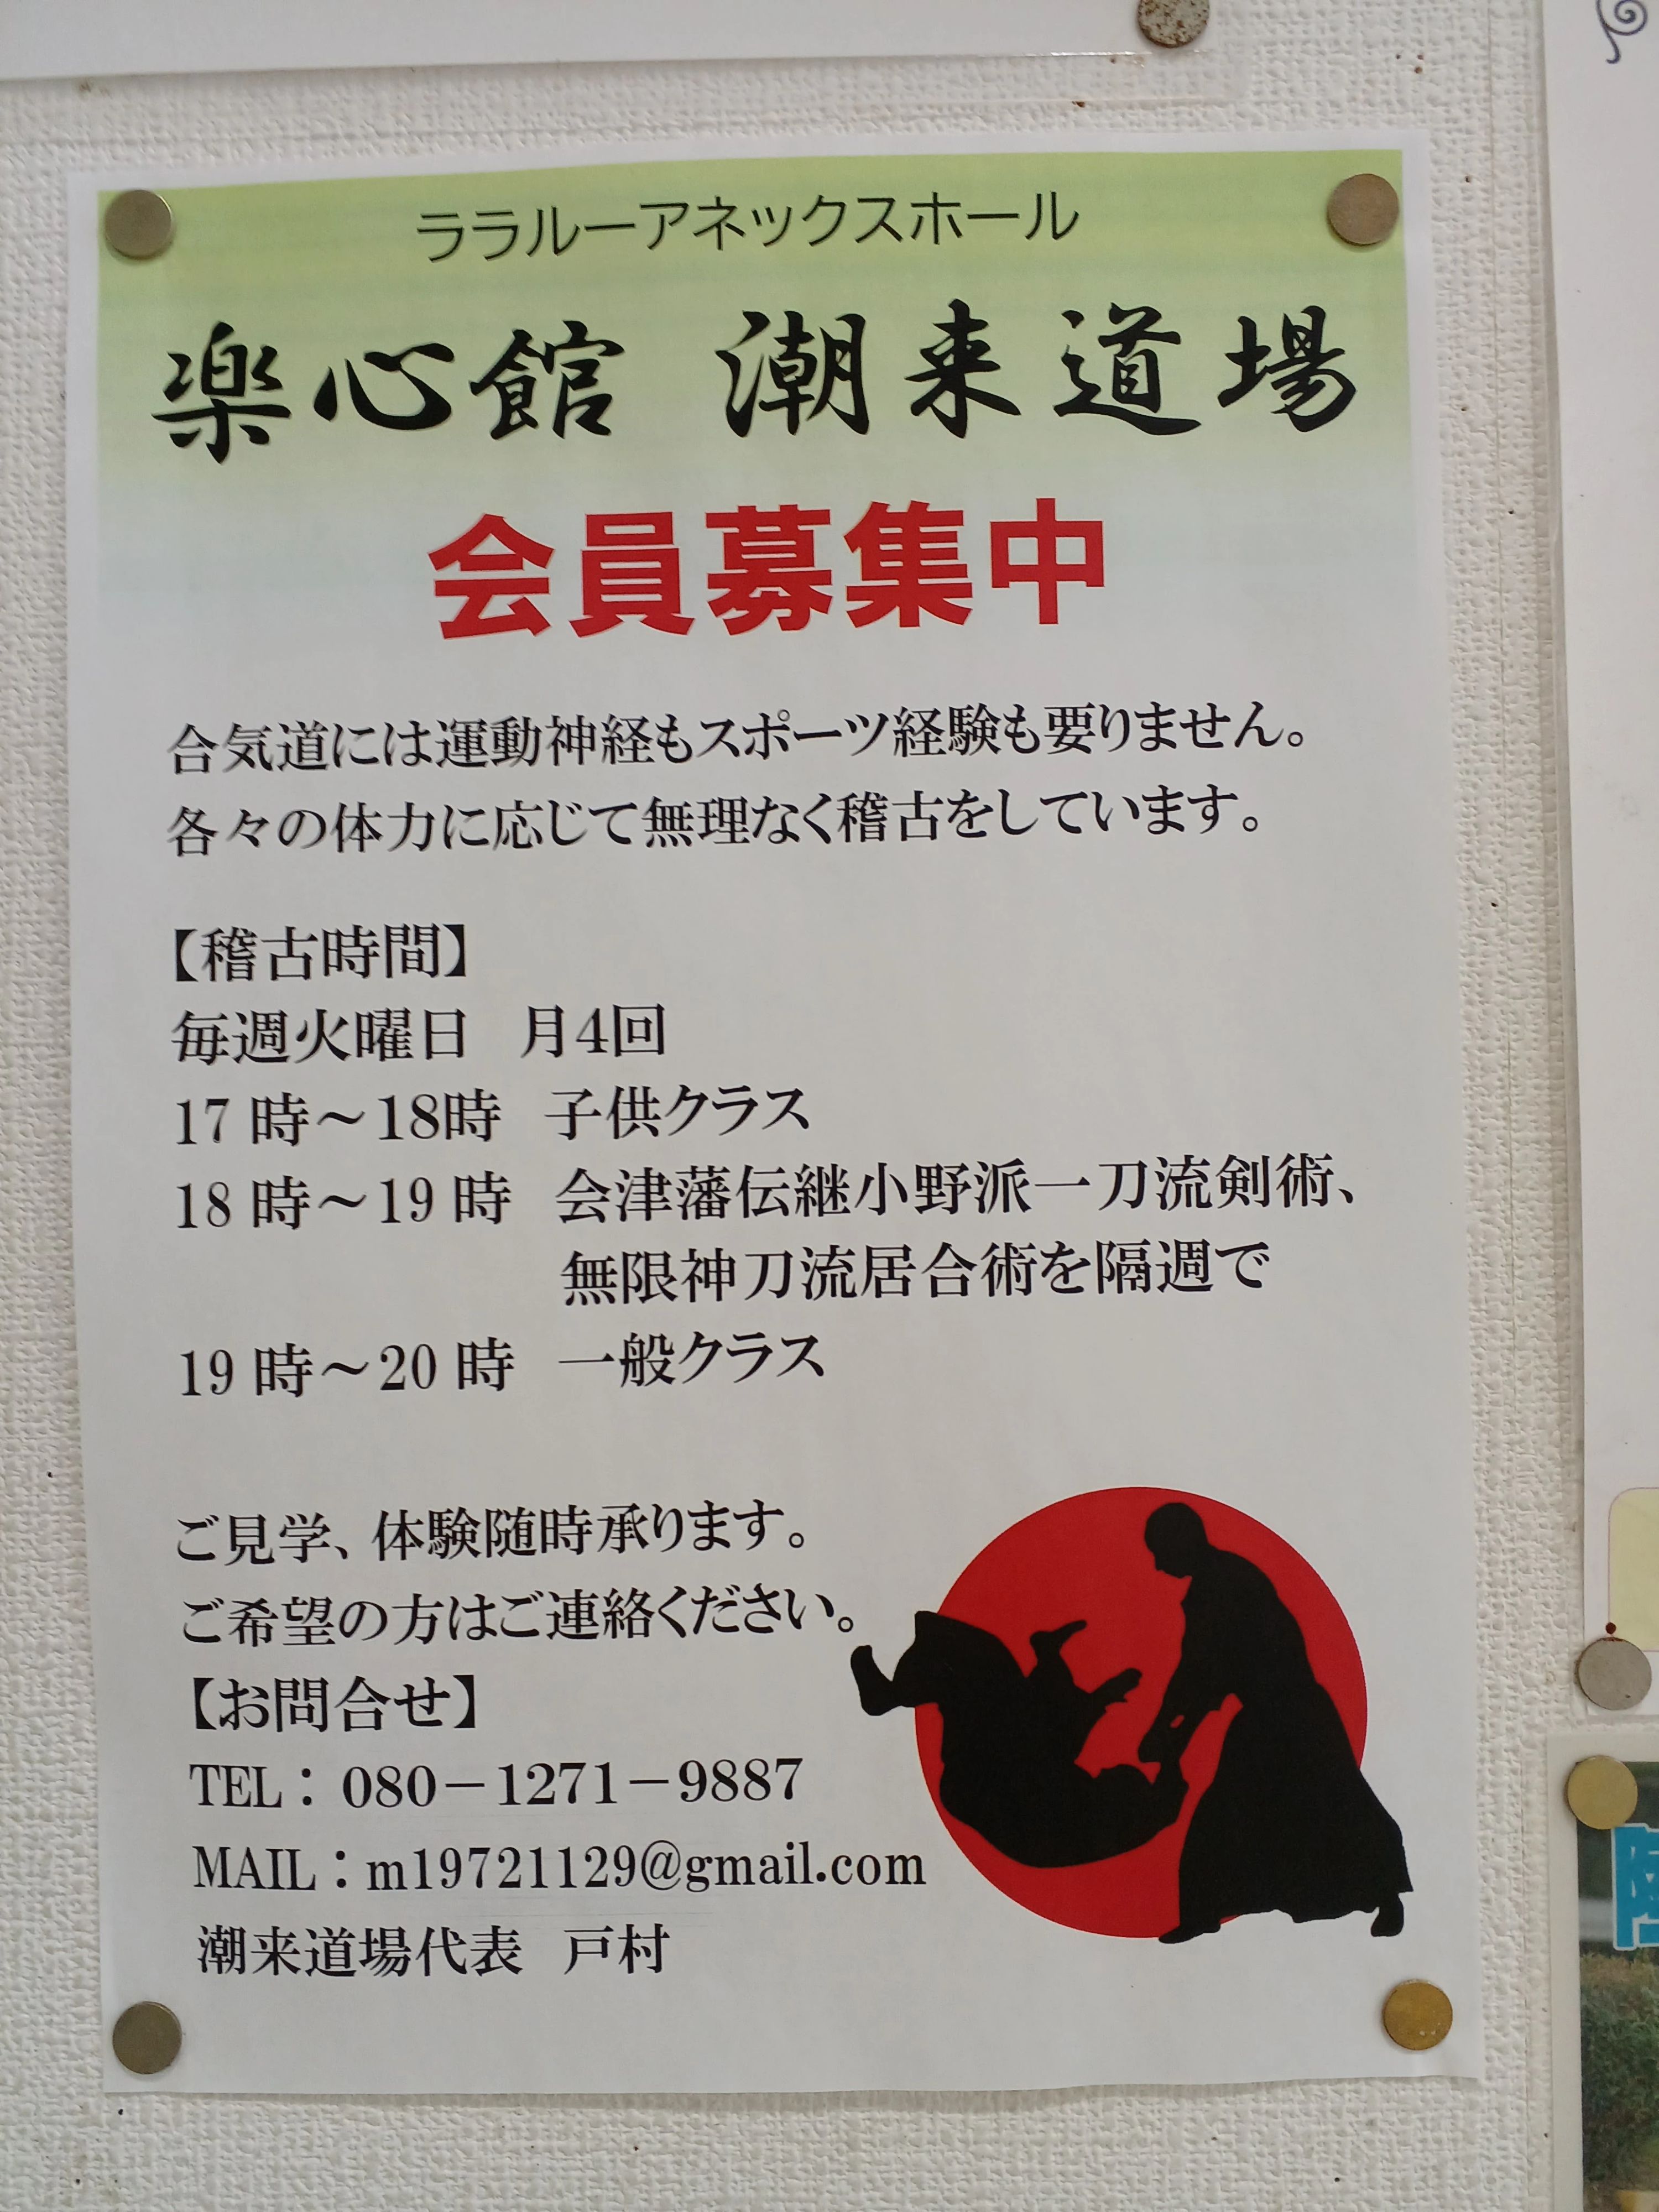 ララルーアネックスホール
楽心館 潮来道場
会員募集中
合気道には運動神経もスポーツ経験も要りません。
各々の体力に応じて無理なく稽古をしています。
【稽古時間】
毎週火曜日 月4回
17時～18時 子供クラス
18時～19時 会津藩伝継小野派一刀流剣術、
無限神刀流居合術を隔週で
19時～20時 一般クラス
ご見学、体験随時承ります。
ご希望の方はご連絡ください。
【お問合せ】
TEL：080－1271－9887
MAIL：m19721129@gmail.com
潮来道場代表 戸村